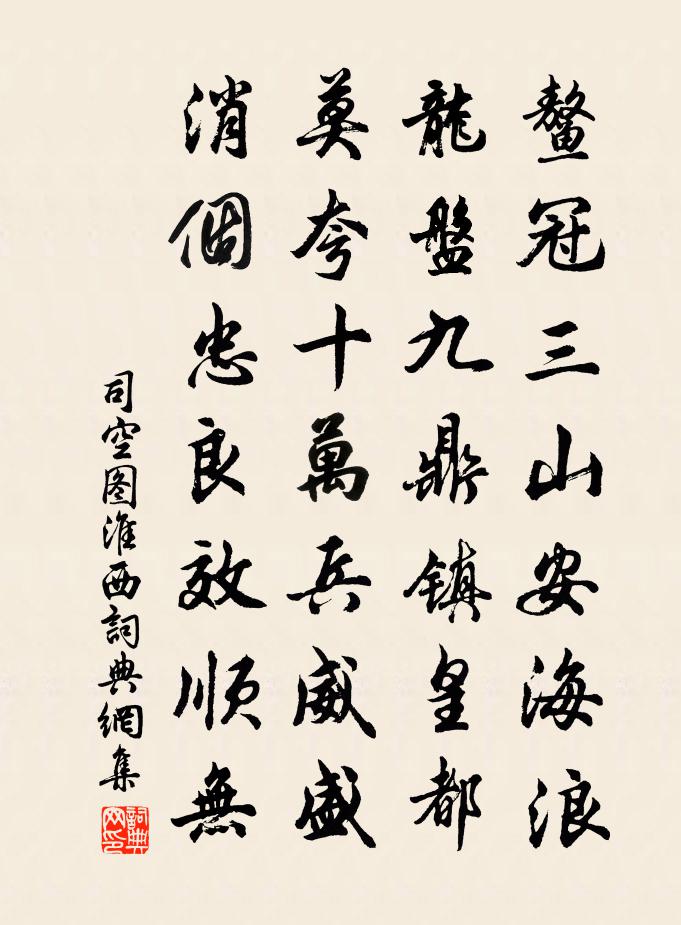 鰲冠三山安海浪
龍盤九鼎镇皇都
莫夸十萬兵威盛
消個忠良效順無
司空图淮西詞典網集
詞典网印